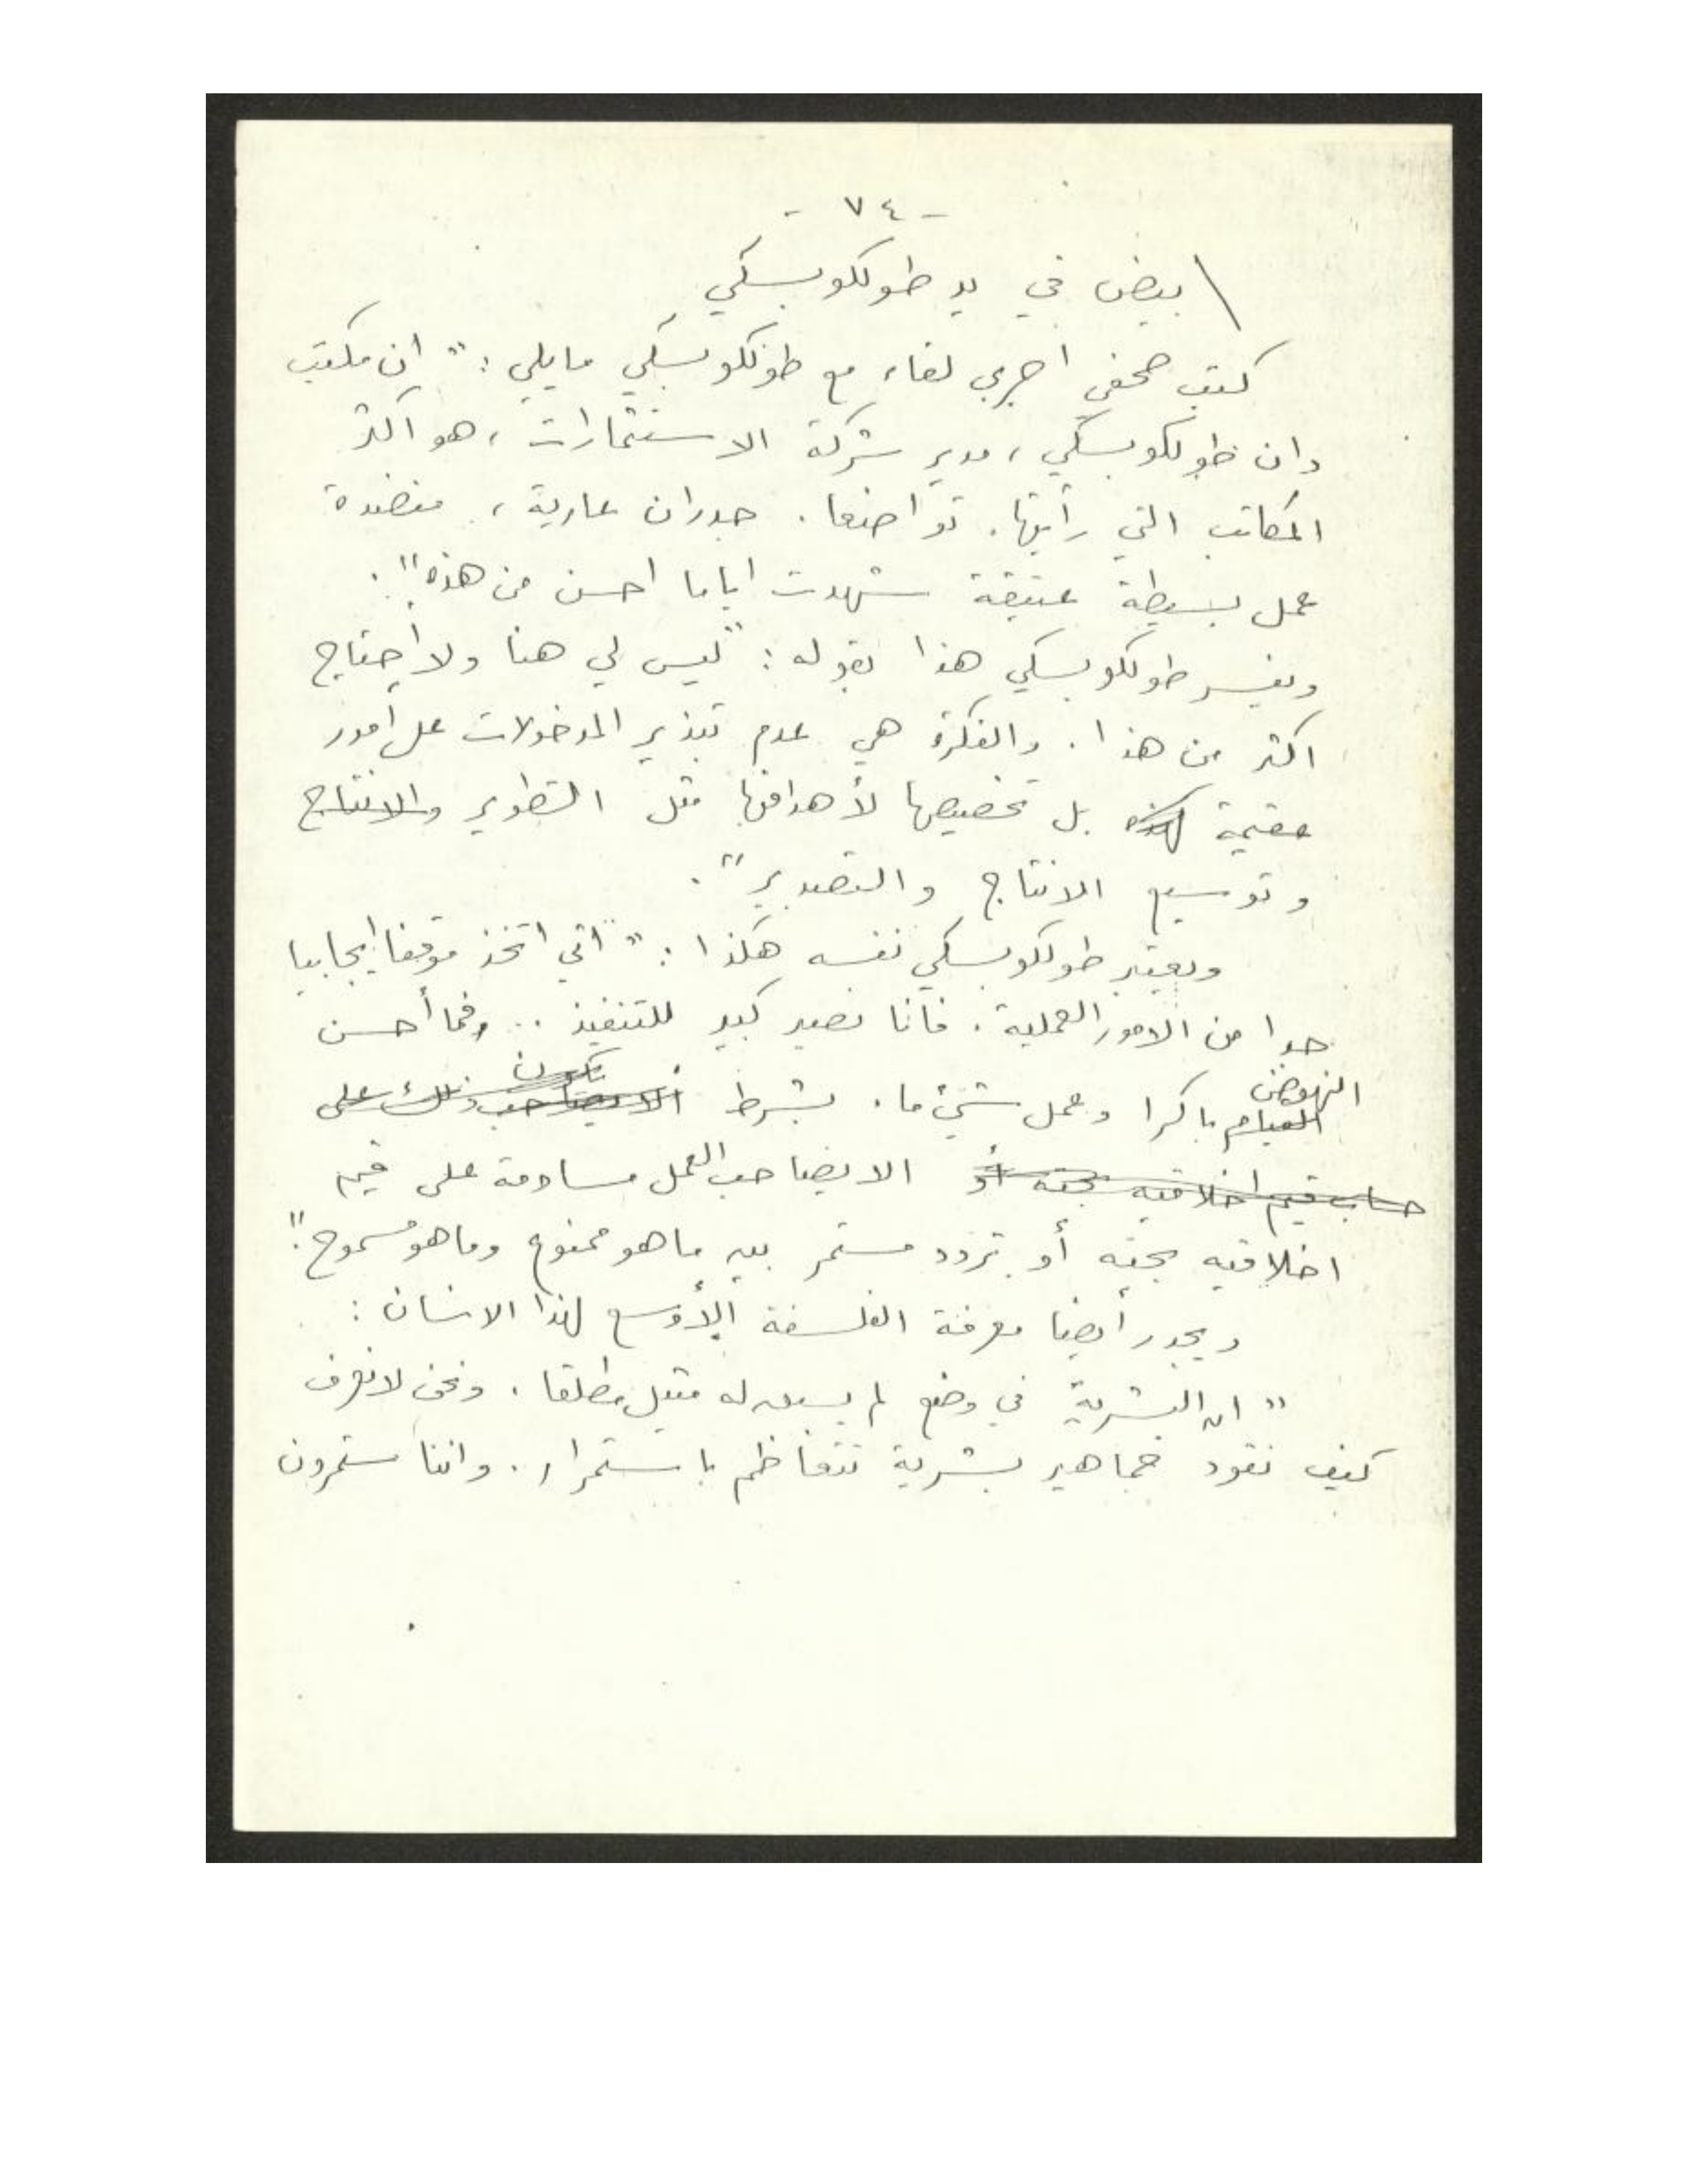 - ٧٤ -
\ بيض في يد طولكوبسكي
كتب صحفي اجرى لقاء مع طولكوبسكي مايلي : " ان مكتب
دان طولكوبسكي ، مدير شركة الاستثمارات ، هو اكثر
المكاتب التي رأيتها . تواضعا . جدران عارية ، منضدة
عمل بسيطة عتيقة شهدت اياما احسن من هذه " .
ويفسر طولكوبسكي هذا بقوله : " ليس لي هنا ولا أحتاج
اكثر من هذا . والفكرة هي عدم تبذير المدخولات على أمور
عقيمة بل تخصيصها لأهدافها مثل التطوير والانتاج
وتوسيع الانتاج والتصدير " .
ويعتبر طولكوبسكي نفسه هكذا : " اني اتخذ موقفا إيجابيا
جدا من الامور العملية . فانا نصير كبير للتنفيذ .. فما أحسن
النهوض
القيام باكرا وعمل شيئ ما . بشرط الا يصاحب ذلك على
يكون
حساب قيم اخلاقيه بحته أو الا يصاحب العمل مساومة على قيم
اخلاقيه بحته أو تردد مستمر بين ما هو ممنوع وما هو مسموح " .
ويجدر أيضا معرفة الفلسفة الأوسع لهذا الانسان :
" ان البشرية في وضع لم يسبق له مثيل مطلقا . ونحن لانعرف
كيف نقود جماهير بشرية تتعاظم باستمرار . واننا مستمرون